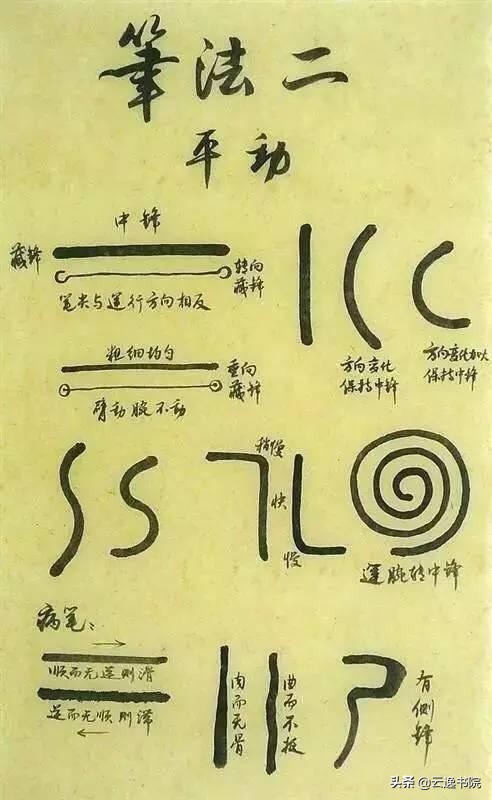 筆法二
平動
中鋒
藏鋒
转向
藏鋒
笔尖与運行方向相反
粗细均匀
垂向
藏鋒
臂动腕不动
方向变化
保持中锋
方向变化加大
保持中锋
稍慢
快
慢
運腕转中锋
病笔：
顺而无逆则滑
逆而无顺则滞
肉而无骨
曲而不挺
有侧锋
头条@云逸书院